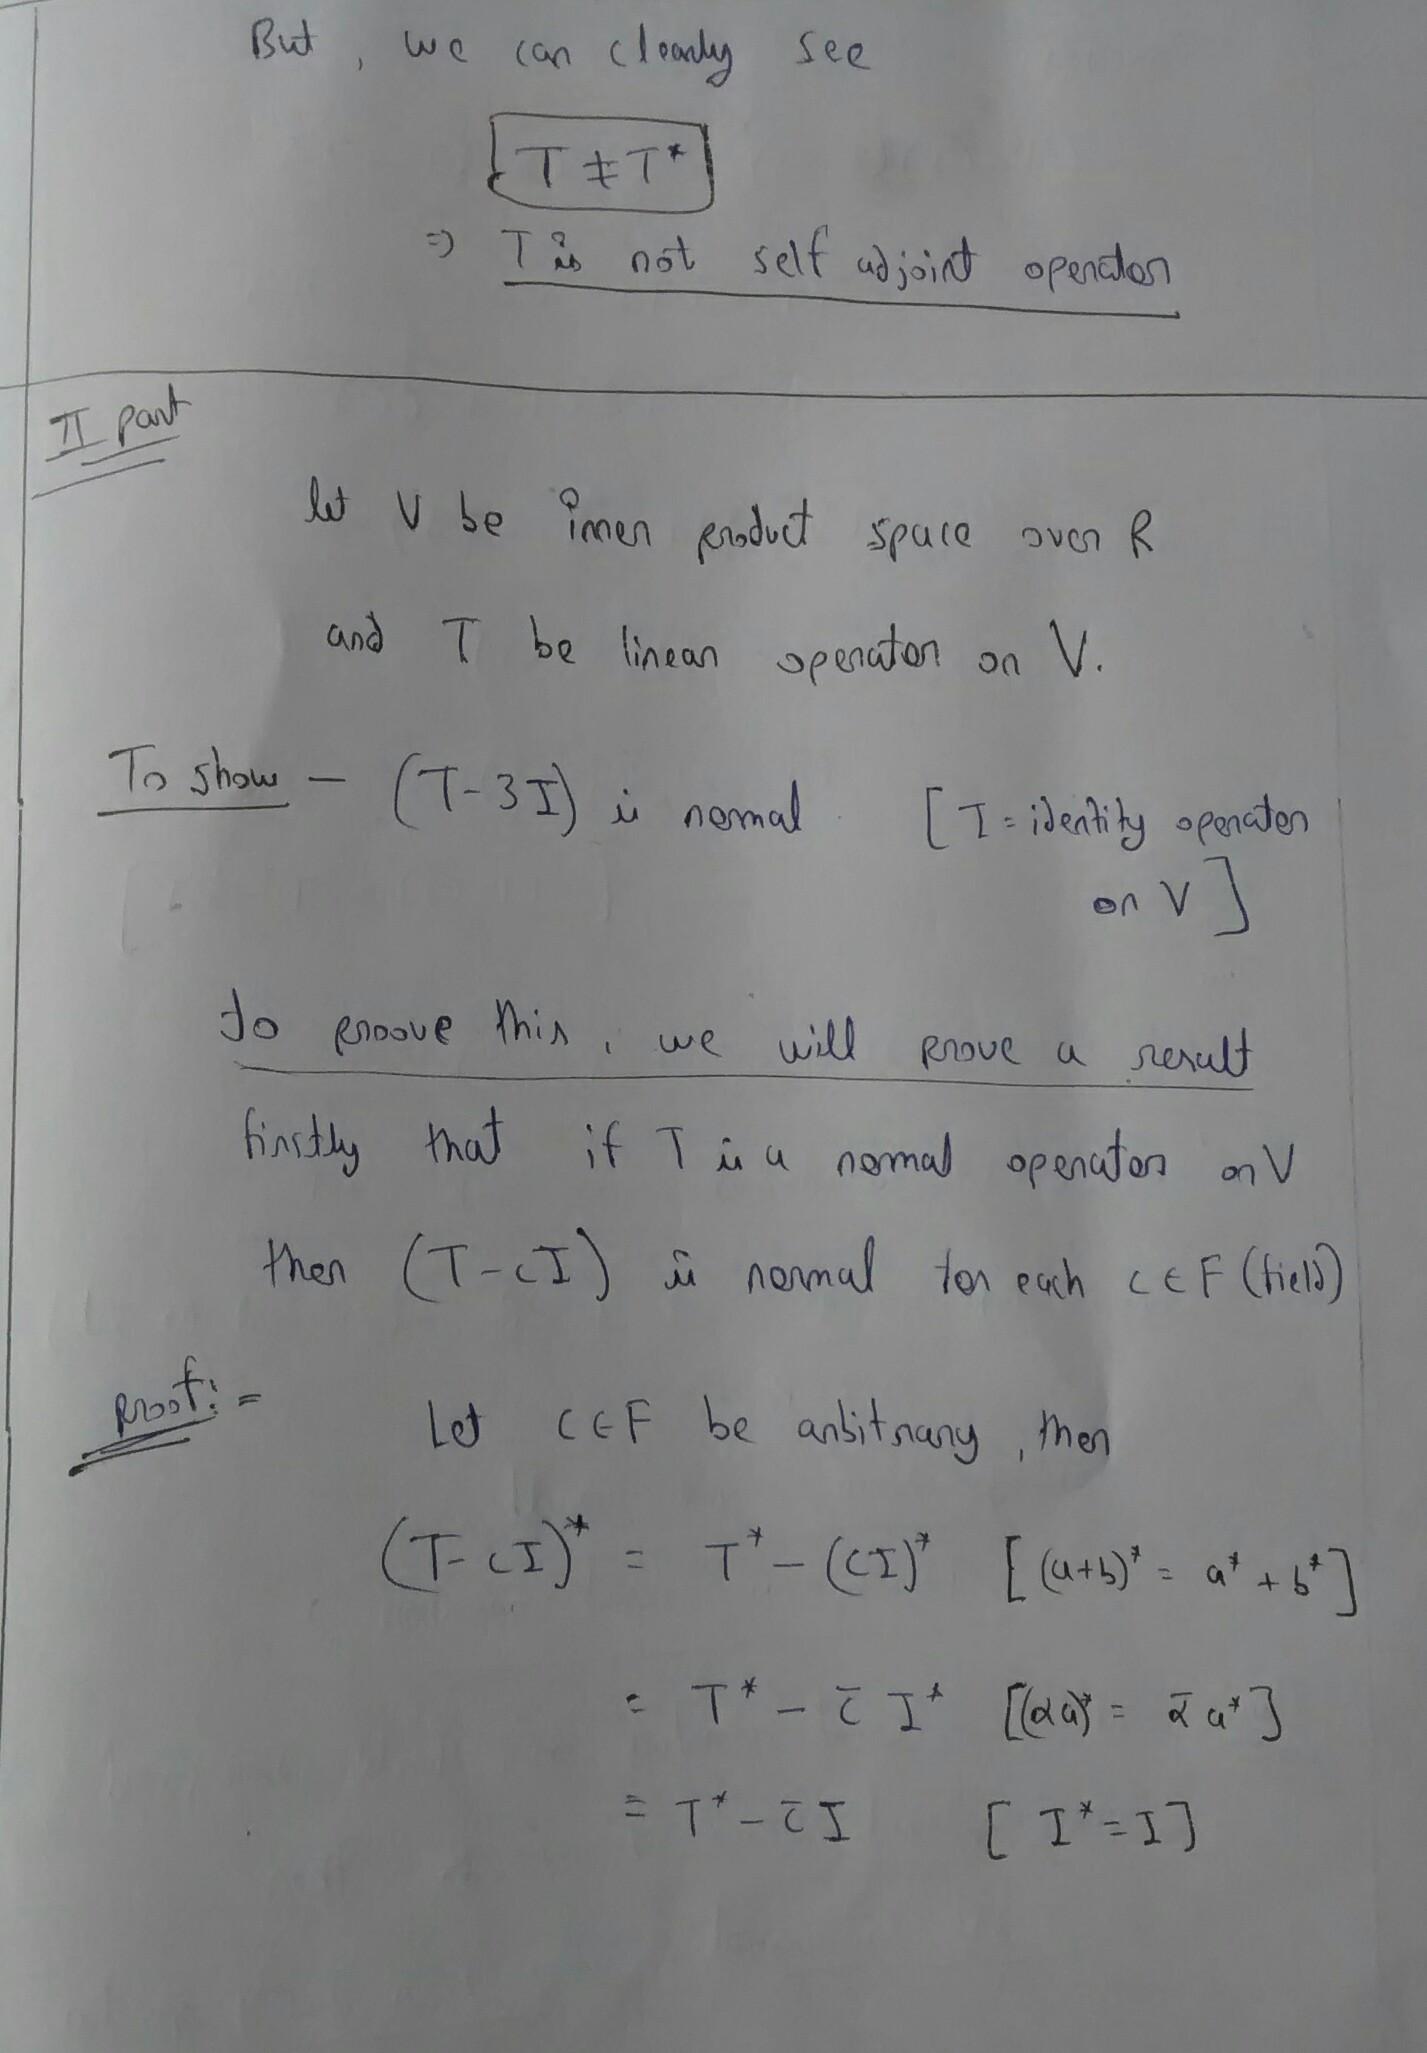 But, we can clearly see
T ≠ T*
⇒ T is not self adjoint operator
II part
let V be inner product space over R
and T be linear operator on V.
To show – (T-3I) is normal [I = identity operator
on V]
To proove this, we will prove a result
firstly that if T is a normal operator on V
then (T-cI) is normal for each c∈F (field)
proof:=
Let c∈F be arbitrary, then
(T-cI)* = T* – (cI)* [(a+b)* = a* + b*]
= T* – c̄ I* [(αa)* = ᾱ a*]
= T* – c̄ I [I* = I]